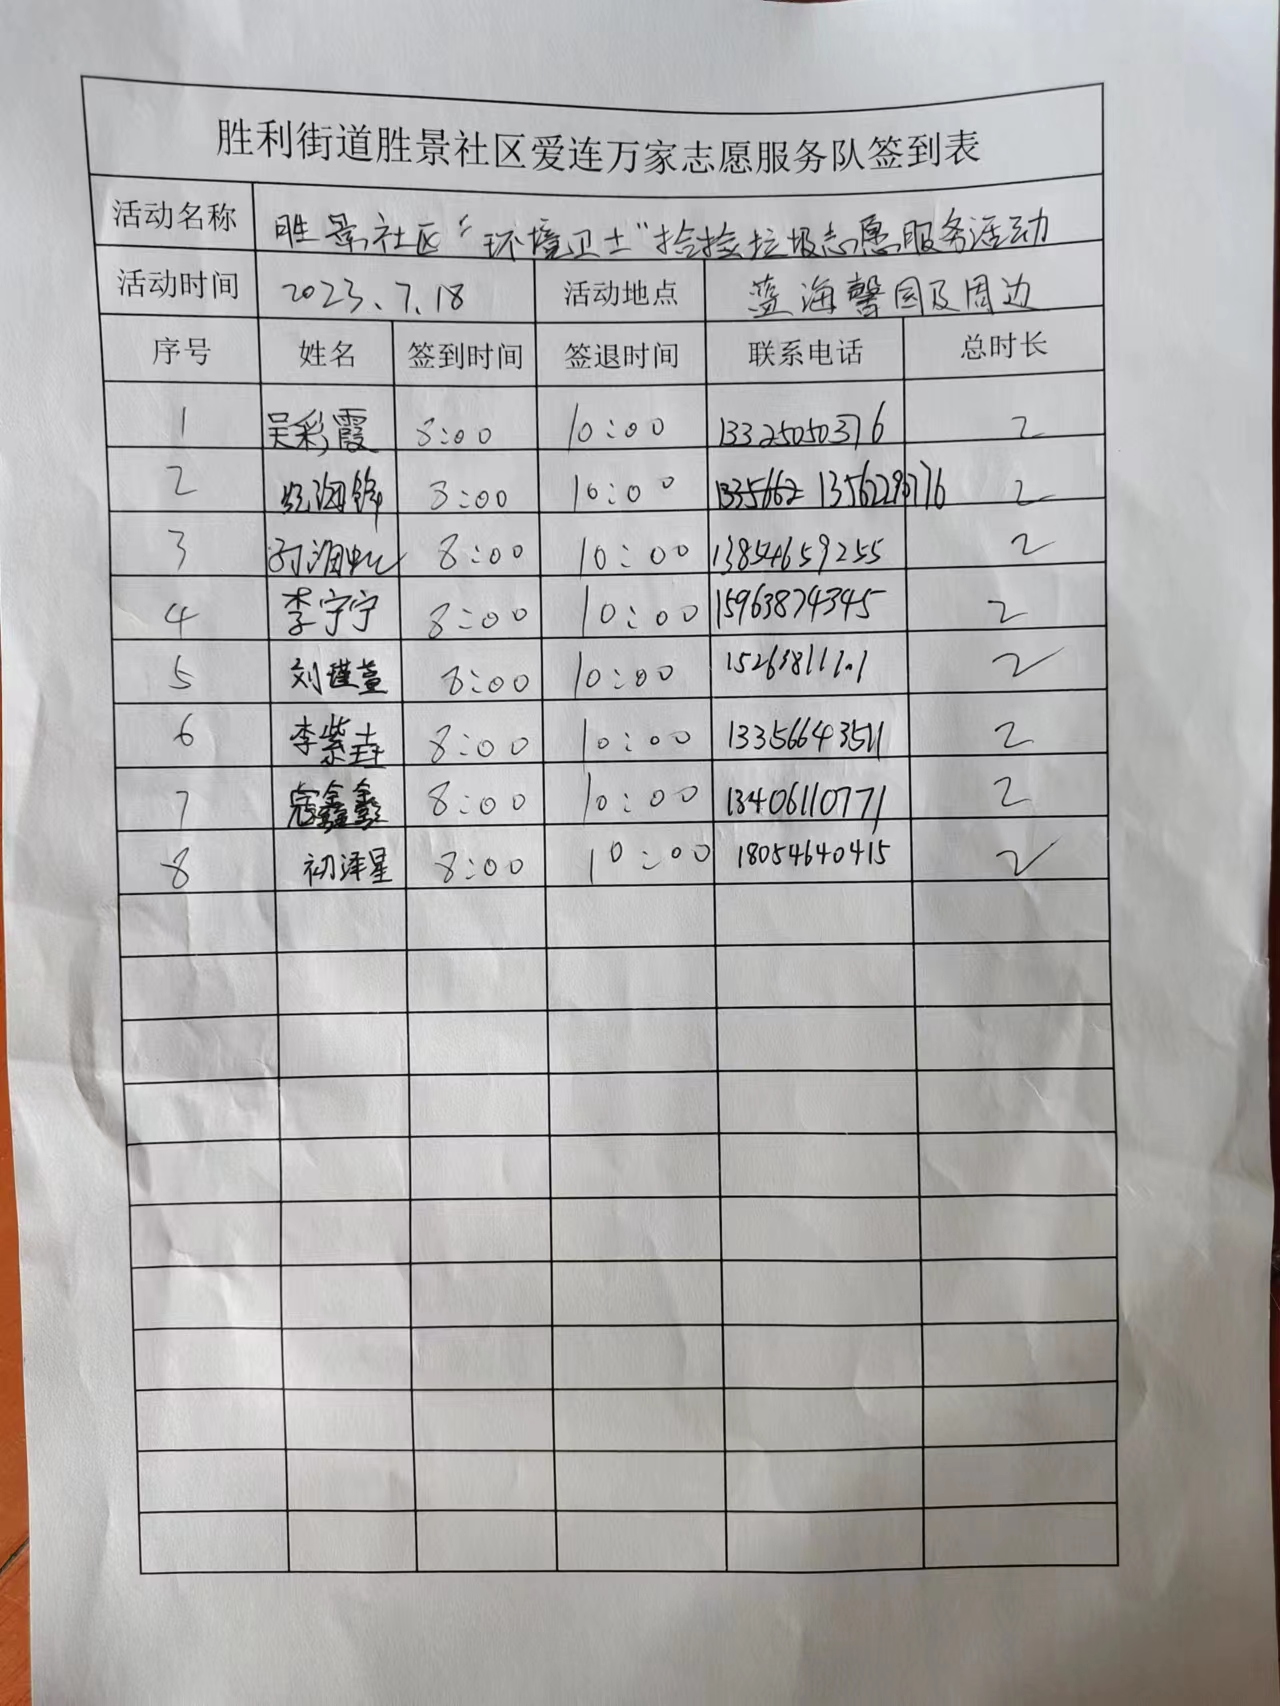 胜利街道胜景社区爱连万家志愿服务队签到表
活动名称 胜景社区“环境卫士”捡捡垃圾志愿服务活动
活动时间 2023.7.18 活动地点 蓝海馨园及周边
序号 姓名 签到时间 签退时间 联系电话 总时长
1 吴彩霞 8:00 10:00 13325050376 2
2 8:00 10:00 1335662 13562290776 2
3 8:00 10:00 13854659255 2
4 李宁宁 8:00 10:00 15963874345 2
5 刘瑾萱 8:00 10:00 2
6 李紫垚 8:00 10:00 13356643511 2
7 寇鑫鑫 8:00 10:00 13406110771 2
8 初泽星 8:00 10:00 18054640415 2